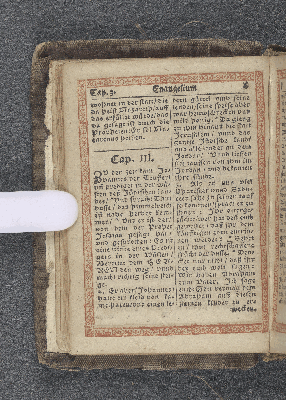 Cap. 3. Evangelium
wohnet in der statt / die
da heist Nazareth / auff
das erfüllet würde / das
da gesagt ist durch die
Propheten: Er sol Na-
zarenus heissen.
Cap. III.
Zu der zeit kam Jo-
hannes der Teuffer /
und prediget in der wü-
sten des Jüdischen lan-
des / und sprach: Thut
busse / das himmelreich
ist nahe herbey kom-
men. Und er ist der /
von dem der Prophet
Jesaias gesagt hat /
und gesprochen: Es ist
eine stimme eines Predi-
gers in der Wüsten /
Bereitet dem HER-
REN den weg / und
machet richtig seine stei-
ge.
Er aber / Johannes /
hatte ein kleid von Ca-
meelharen / und einen le-
dern gürtel umb seine
lenden / seine speise aber
war heuschrecken und
wild honig.
zu ihm hinaus die stat
Jerusalem / und das
gantze Jüdische land /
und alle länder an dem
Jordan / Und liessen
sich tauffen von ihm im
Jordan / und bekenneten
ihre sünde.
Als er nun viel
Phariseer und Saddu-
ceer sahe zu seiner tauf-
fe kommen / sprach er zu
ihnen: Ihr ottern-
gezichte / wer hat denn
euch geweiset / das ihr dem
künfftigen zorn entrin-
nen werdet? Sehet
zu / thut rechtschaffene
früchte der busse. Den-
cket nur nicht / das ihr
bey euch wolt sagen:
Wir haben Abraham
zum Vater. Ich sage
euch: Gott vermag dem
Abraham aus diesen
steinen kinder zu er-
wecken.